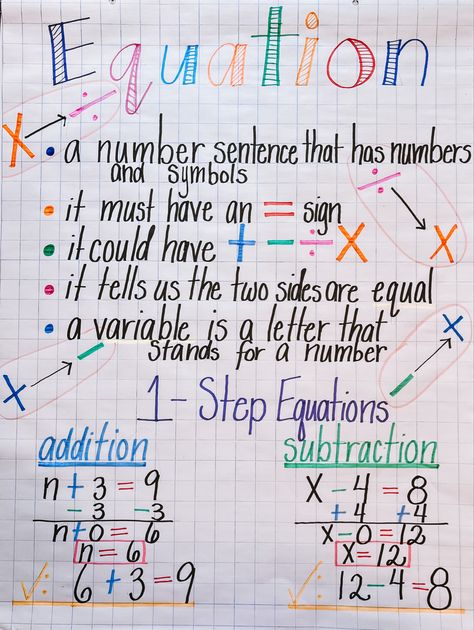 Equation
X → ÷
• a number sentence that has numbers
and symbols
÷ → X
• it must have an = sign
• it could have + - ÷ X
• it tells us the two sides are equal
• a variable is a letter that
stands for a number
X → -
- → X
1-Step Equations
addition
n + 3 = 9
- 3 - 3
n + 0 = 6
n = 6
✓: 6 + 3 = 9
subtraction
x - 4 = 8
+ 4 + 4
x - 0 = 12
x = 12
✓: 12 - 4 = 8